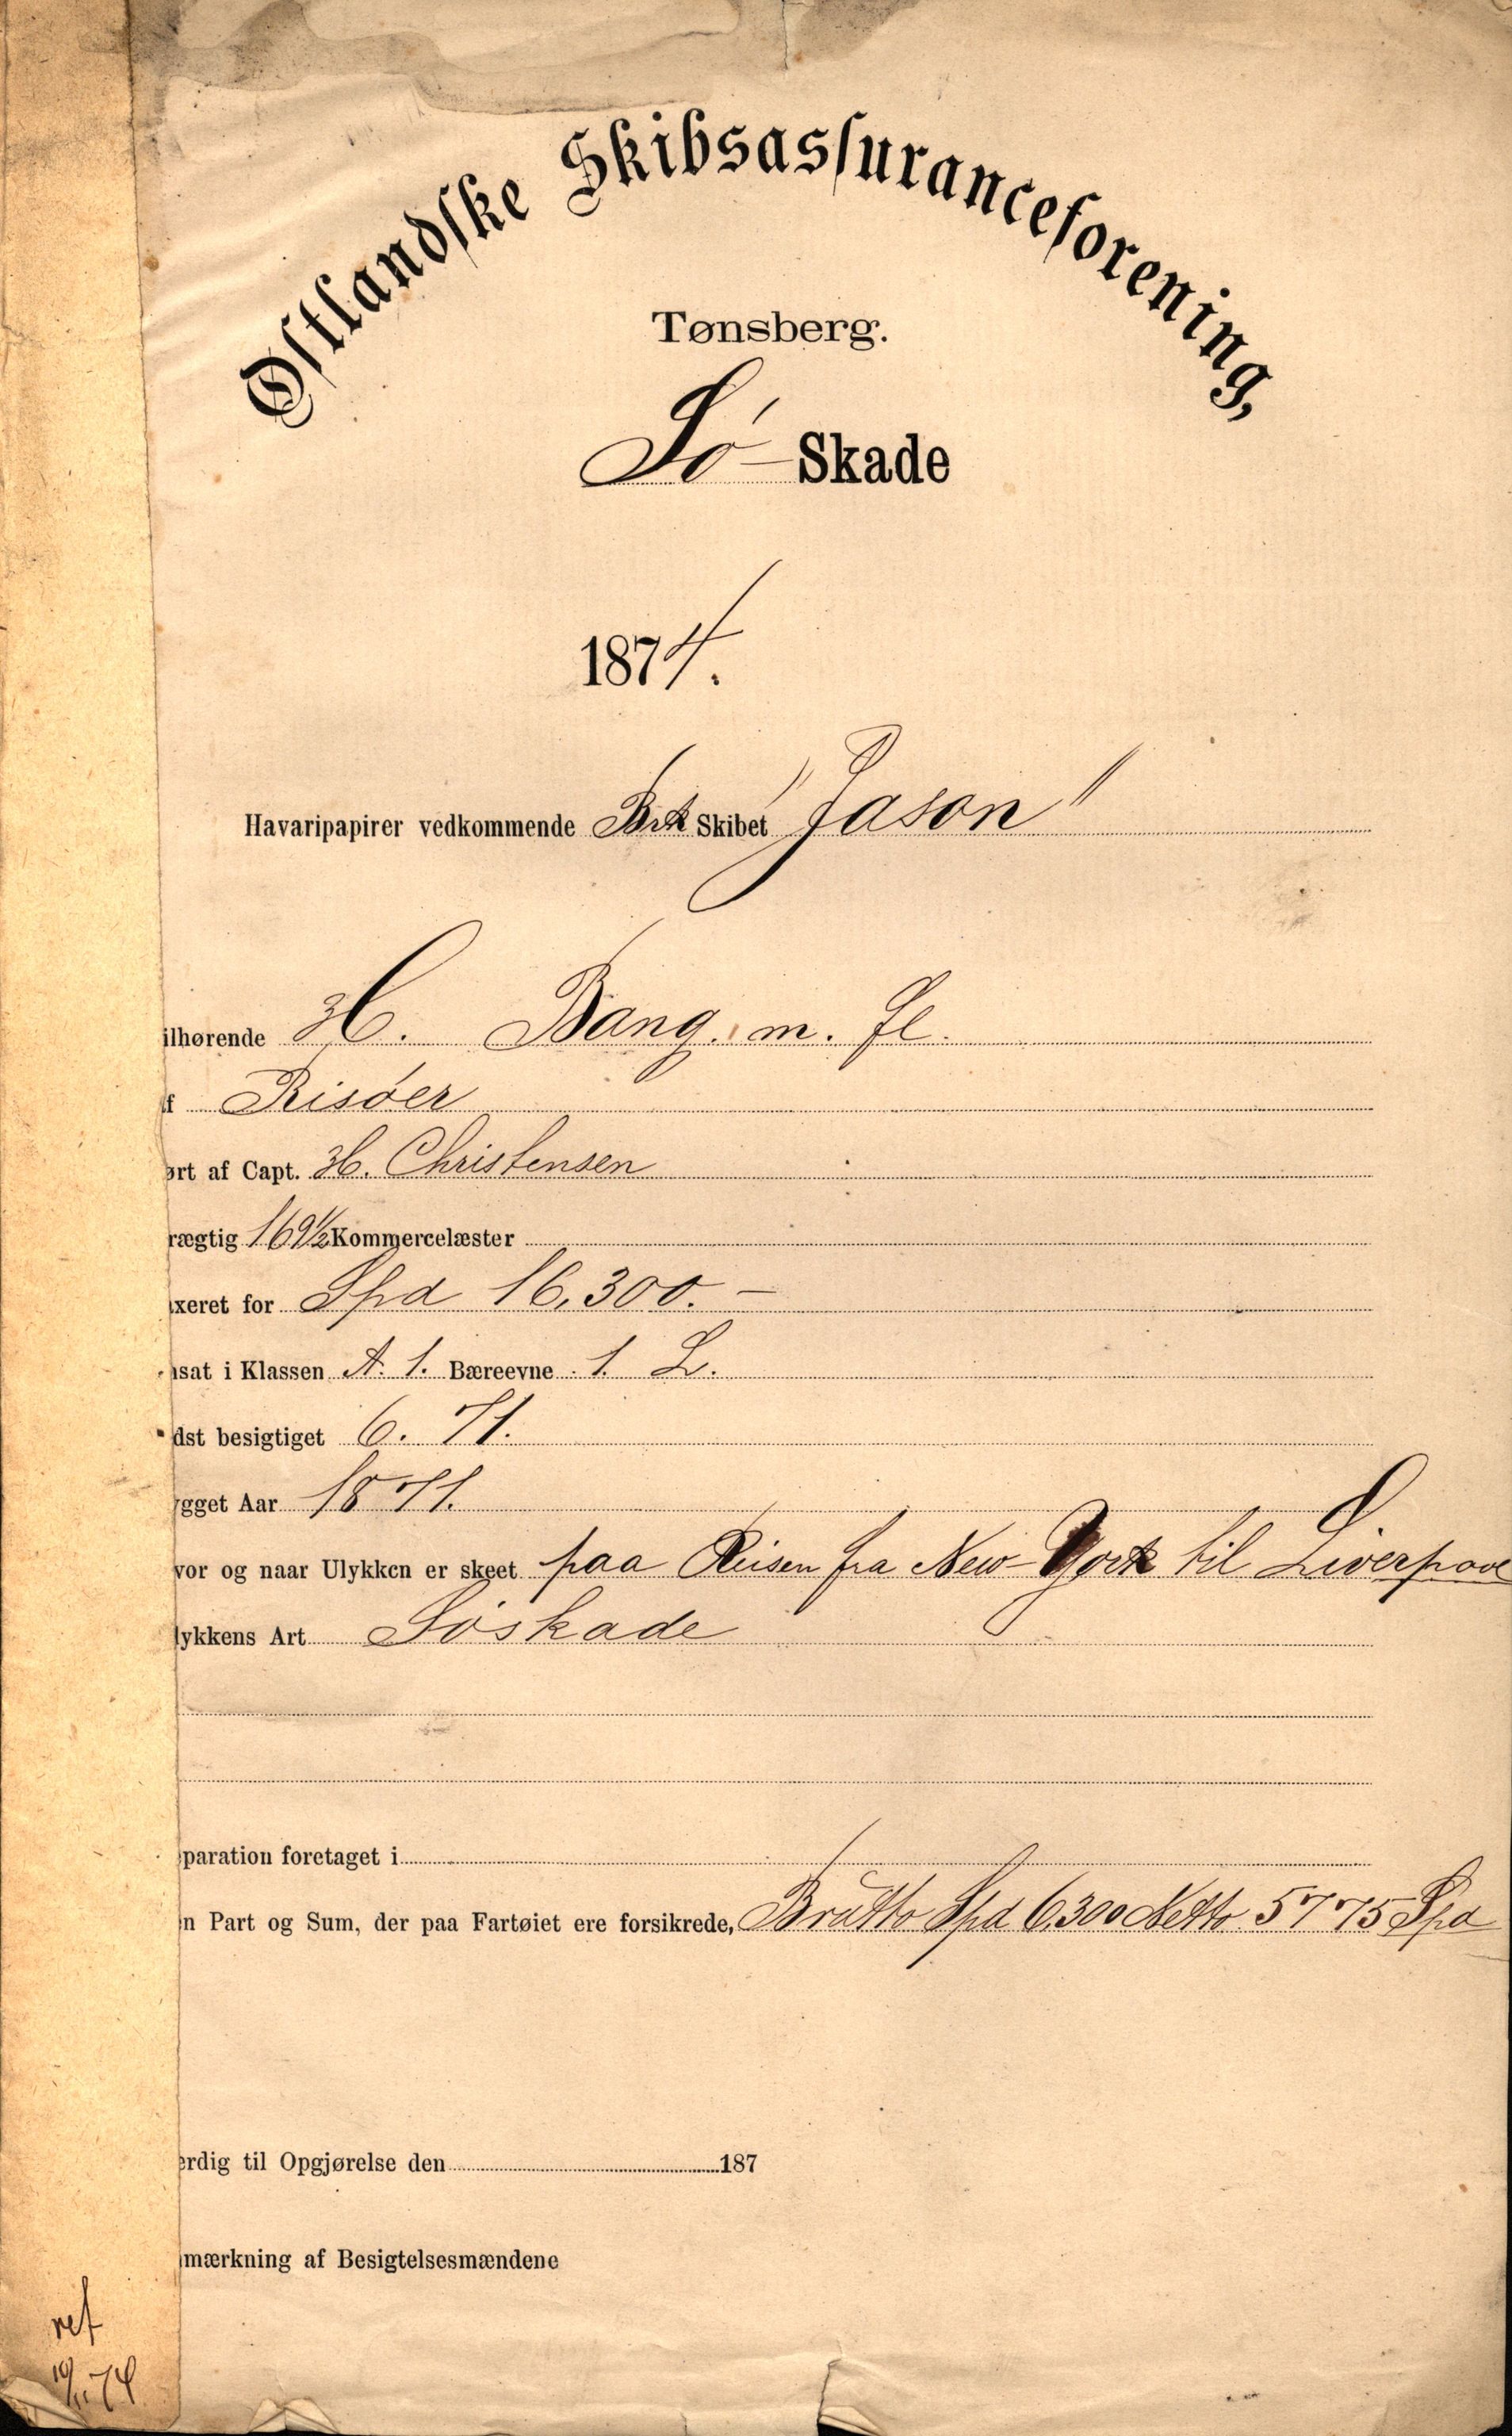 Østlandske Skibsassuranceforening,
Tønsberg.
Sø-Skade
1874.
Havaripapirer vedkommende Brk Skibet "Jason"
ilhørende H. Bang. m. fl.
f Risøer
ørt af Capt. H. Christensen
rægtig 169½ Kommercelæster
xeret for Spd 16,300.-
sat i Klassen A. 1. Bæreevne 1. L.
dst besigtiget 6. 71.
gget Aar 1871.
vor og naar Ulykken er skeet paa Reisen fra New-York til Liverpool
lykkens Art Søskade
paration foretaget i
n Part og Sum, der paa Fartøiet ere forsikrede, Brutto Spd 6,300 Netto 5775 Spd
erdig til Opgjørelse den 187
mærkning af Besigtelsesmændene
ref
19/11 74